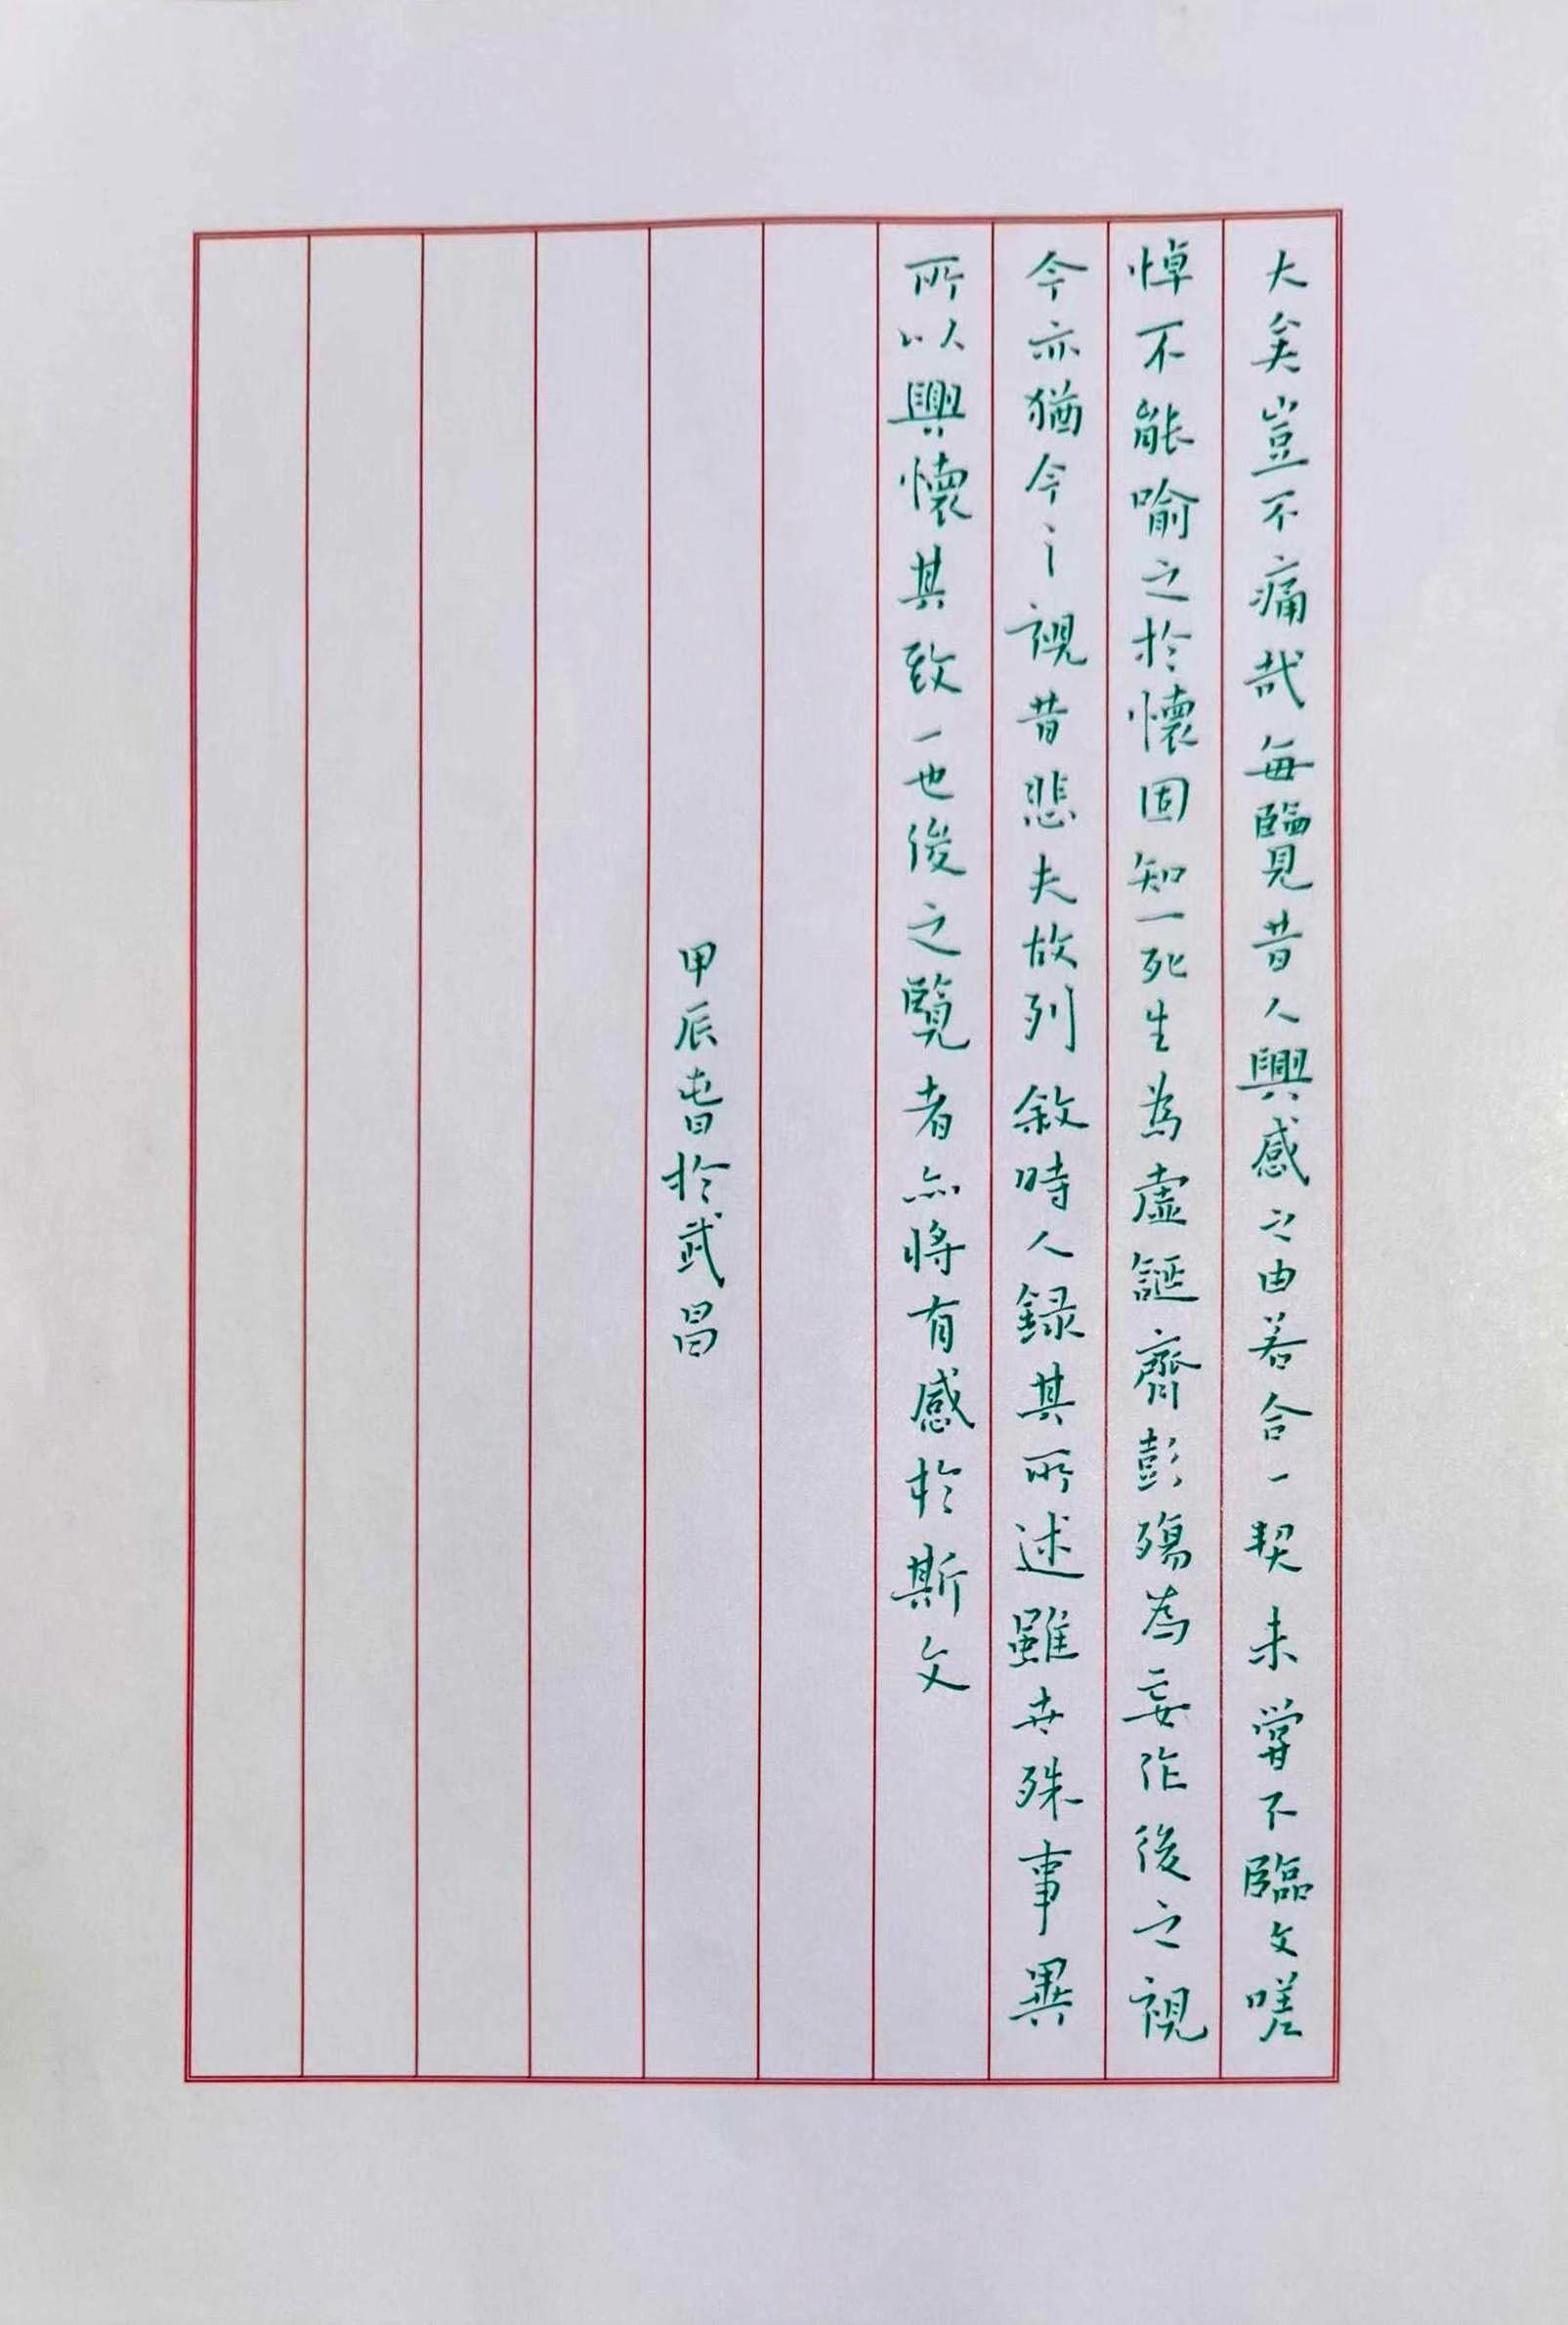 大矣豈不痛哉每覽昔人興感之由若合一契未嘗不臨文嗟
悼不能喻之於懷固知一死生為虛誕齊彭殤為妄作後之視
今亦猶今之視昔悲夫故列敘時人錄其所述雖世殊事異
所以興懷其致一也後之覽者亦將有感於斯文
甲辰旾於武昌